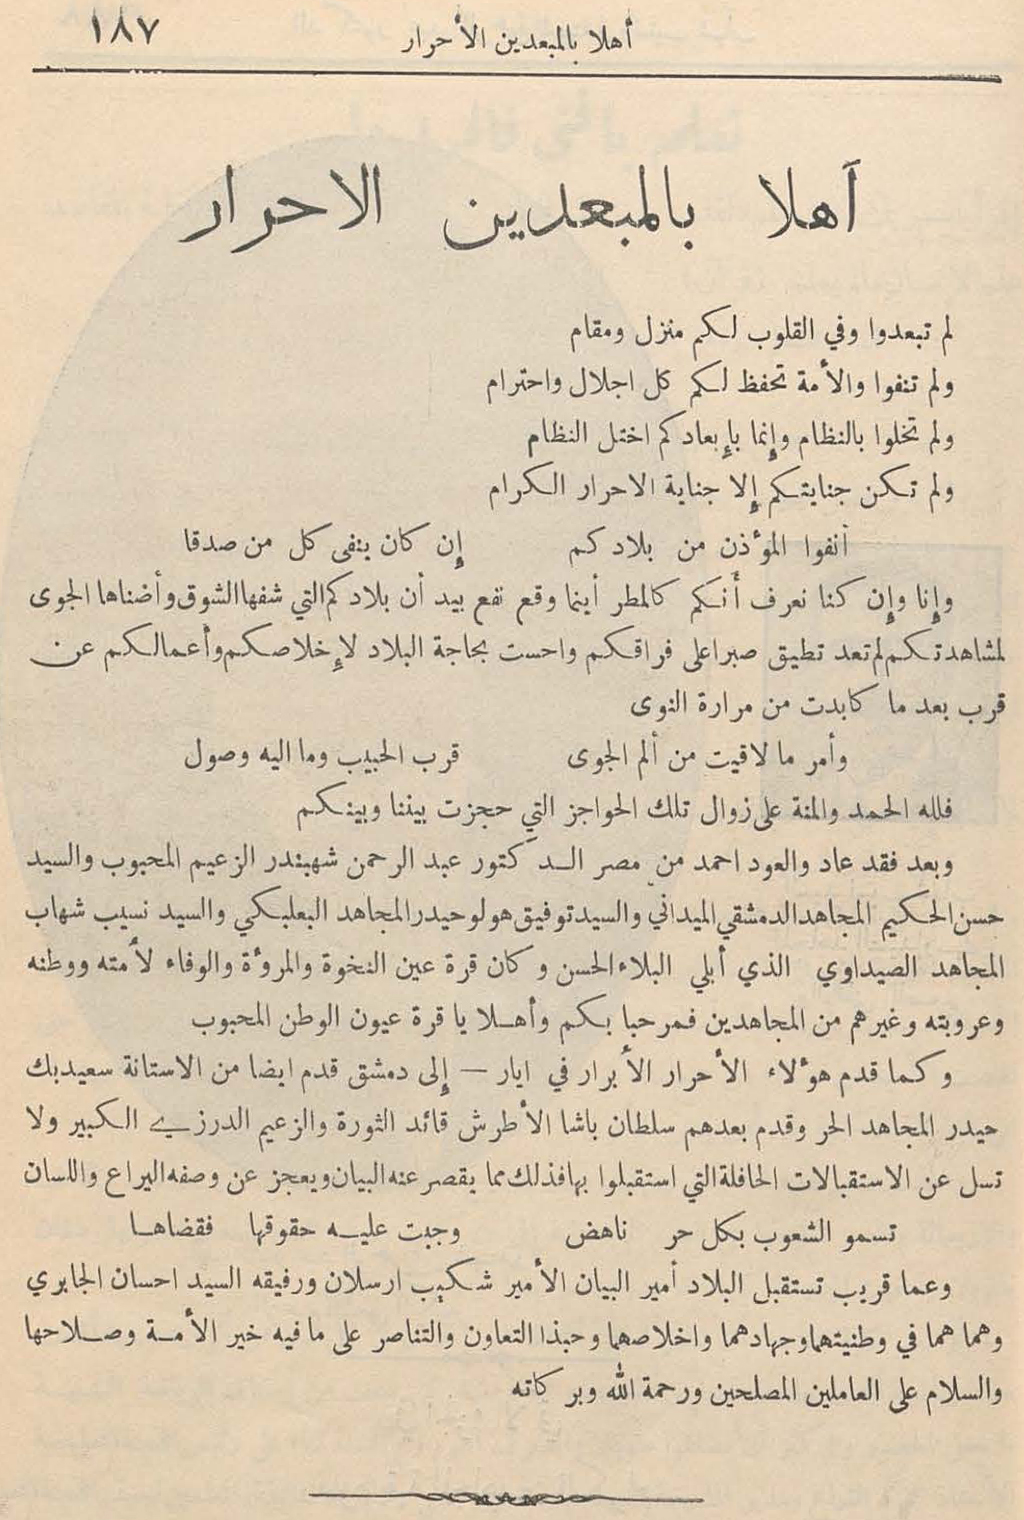 أهلا بالمبعدين الأحرار ١٨٧
أهلا بالمبعدين الاحرار
لم تبعدوا وفي القلوب لكم منزل ومقام
ولم تنفوا والأمة تحفظ لكم كل اجلال واحترام
ولم تخلوا بالنظام وإنما بإبعادكم اختل النظام
ولم تكن جنايتكم إلا جناية الاحرار الكرام
أنفوا المؤذن من بلادكم إن كان ينفى كل من صدقا
وإنا وإن كنا نعرف أنكم كالمطر أينما وقع نفع بيد أن بلادكم التي شفها الشوق وأضناها الجوى
لمشاهدتكم لم تعد تطيق صبرا على فراقكم واحست بحاجة البلاد لإخلاصكم وأعمالكم عن
قرب بعد ما كابدت من مرارة النوى
وأمر ما لاقيت من ألم الجوى قرب الحبيب وما اليه وصول
فلله الحمد والمنة على زوال تلك الحواجز التي حجزت بيننا وبينكم
وبعد فقد عاد والعود احمد من مصر الدكتور عبد الرحمن شهبندر الزعيم المحبوب والسيد
حسن الحكيم المجاهد الدمشقي الميداني والسيد توفيق هولو حيدر المجاهد البعلبكي والسيد نسيب شهاب
المجاهد الصيداوي الذي أبلي البلاء الحسن وكان قرة عين النخوة والمروءة والوفاء لأمته ووطنه
وعروبته وغيرهم من المجاهدين فمرحبا بكم وأهلا يا قرة عيون الوطن المحبوب
وكما قدم هؤلاء الأحرار الأبرار في ايار — إلى دمشق قدم ايضا من الاستانة سعيد بك
حيدر المجاهد الحر وقدم بعدهم سلطان باشا الأطرش قائد الثورة والزعيم الدرزي الكبير ولا
تسل عن الاستقبالات الحافلة التي استقبلوا بها فذلك مما يقصر عنه البيان ويعجز عن وصفه اليراع واللسان
تسمو الشعوب بكل حر ناهض وجبت عليه حقوقها فقضاها
وعما قريب تستقبل البلاد أمير البيان الأمير شكيب ارسلان ورفيقه السيد احسان الجابري
وهما هما في وطنيتهما وجهادهما واخلاصهما وحبذا التعاون والتناصر على ما فيه خير الأمة وصلاحها
والسلام على العاملين المصلحين ورحمة الله وبركاته